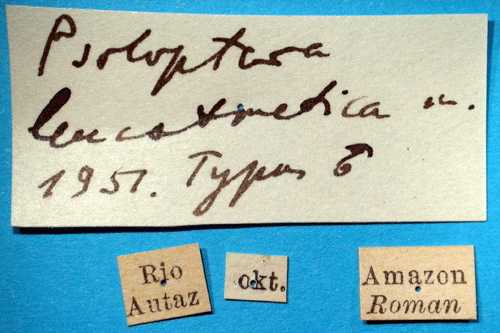 Psoloptera
leucosticta m.
1951. Typus ♂
Rio
Autaz
okt.
Amazon
Roman